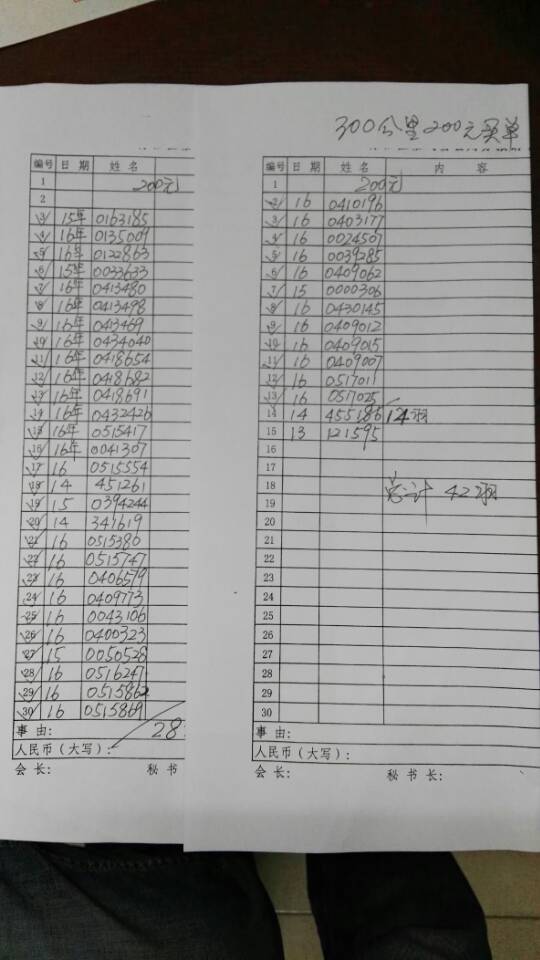 编号 日期 姓名
1 200元
2
3 15年 0163185
4 16年 0135009
5 16年 0122863
6 15年 0033633
7 16年 0413480
8 16年 0413498
9 16年 0413469
10 16年 0434040
11 16年 0418654
12 16年 0418682
13 16年 0418691
14 16年 0432426
15 16年 0515417
16 16年 0041307
17 16 0515554
18 14 451261
19 15 0394244
20 14 341619
21 16 0515380
22 16 0515747
23 16 0406579
24 16 0409773
25 16 0043106
26 16 0400323
27 15 0050528
28 16 0516247
29 16 0515862
30 16 0515869
事由: 28
人民币(大写):
会长: 秘书
300公里200元买单
编号 日期 姓名 内容
1 200元
2 16 0410196
3 16 0403177
4 16 0024507
5 16 0039285
6 16 0409062
7 15 0000306
8 16 0430145
9 16 0409012
10 16 0409015
11 16 0409007
12 16 0517011
13 16 0517025
14 14 455186 14羽
15 13 121595
16
17
18 总计 42羽
19
20
21
22
23
24
25
26
27
28
29
30
事由:
人民币(大写):
会长: 秘书长: